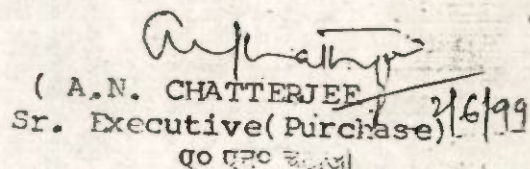 ( A.N. CHATTERJEE
Sr. Executive(Purchase) 2/6/99
ए० एन०